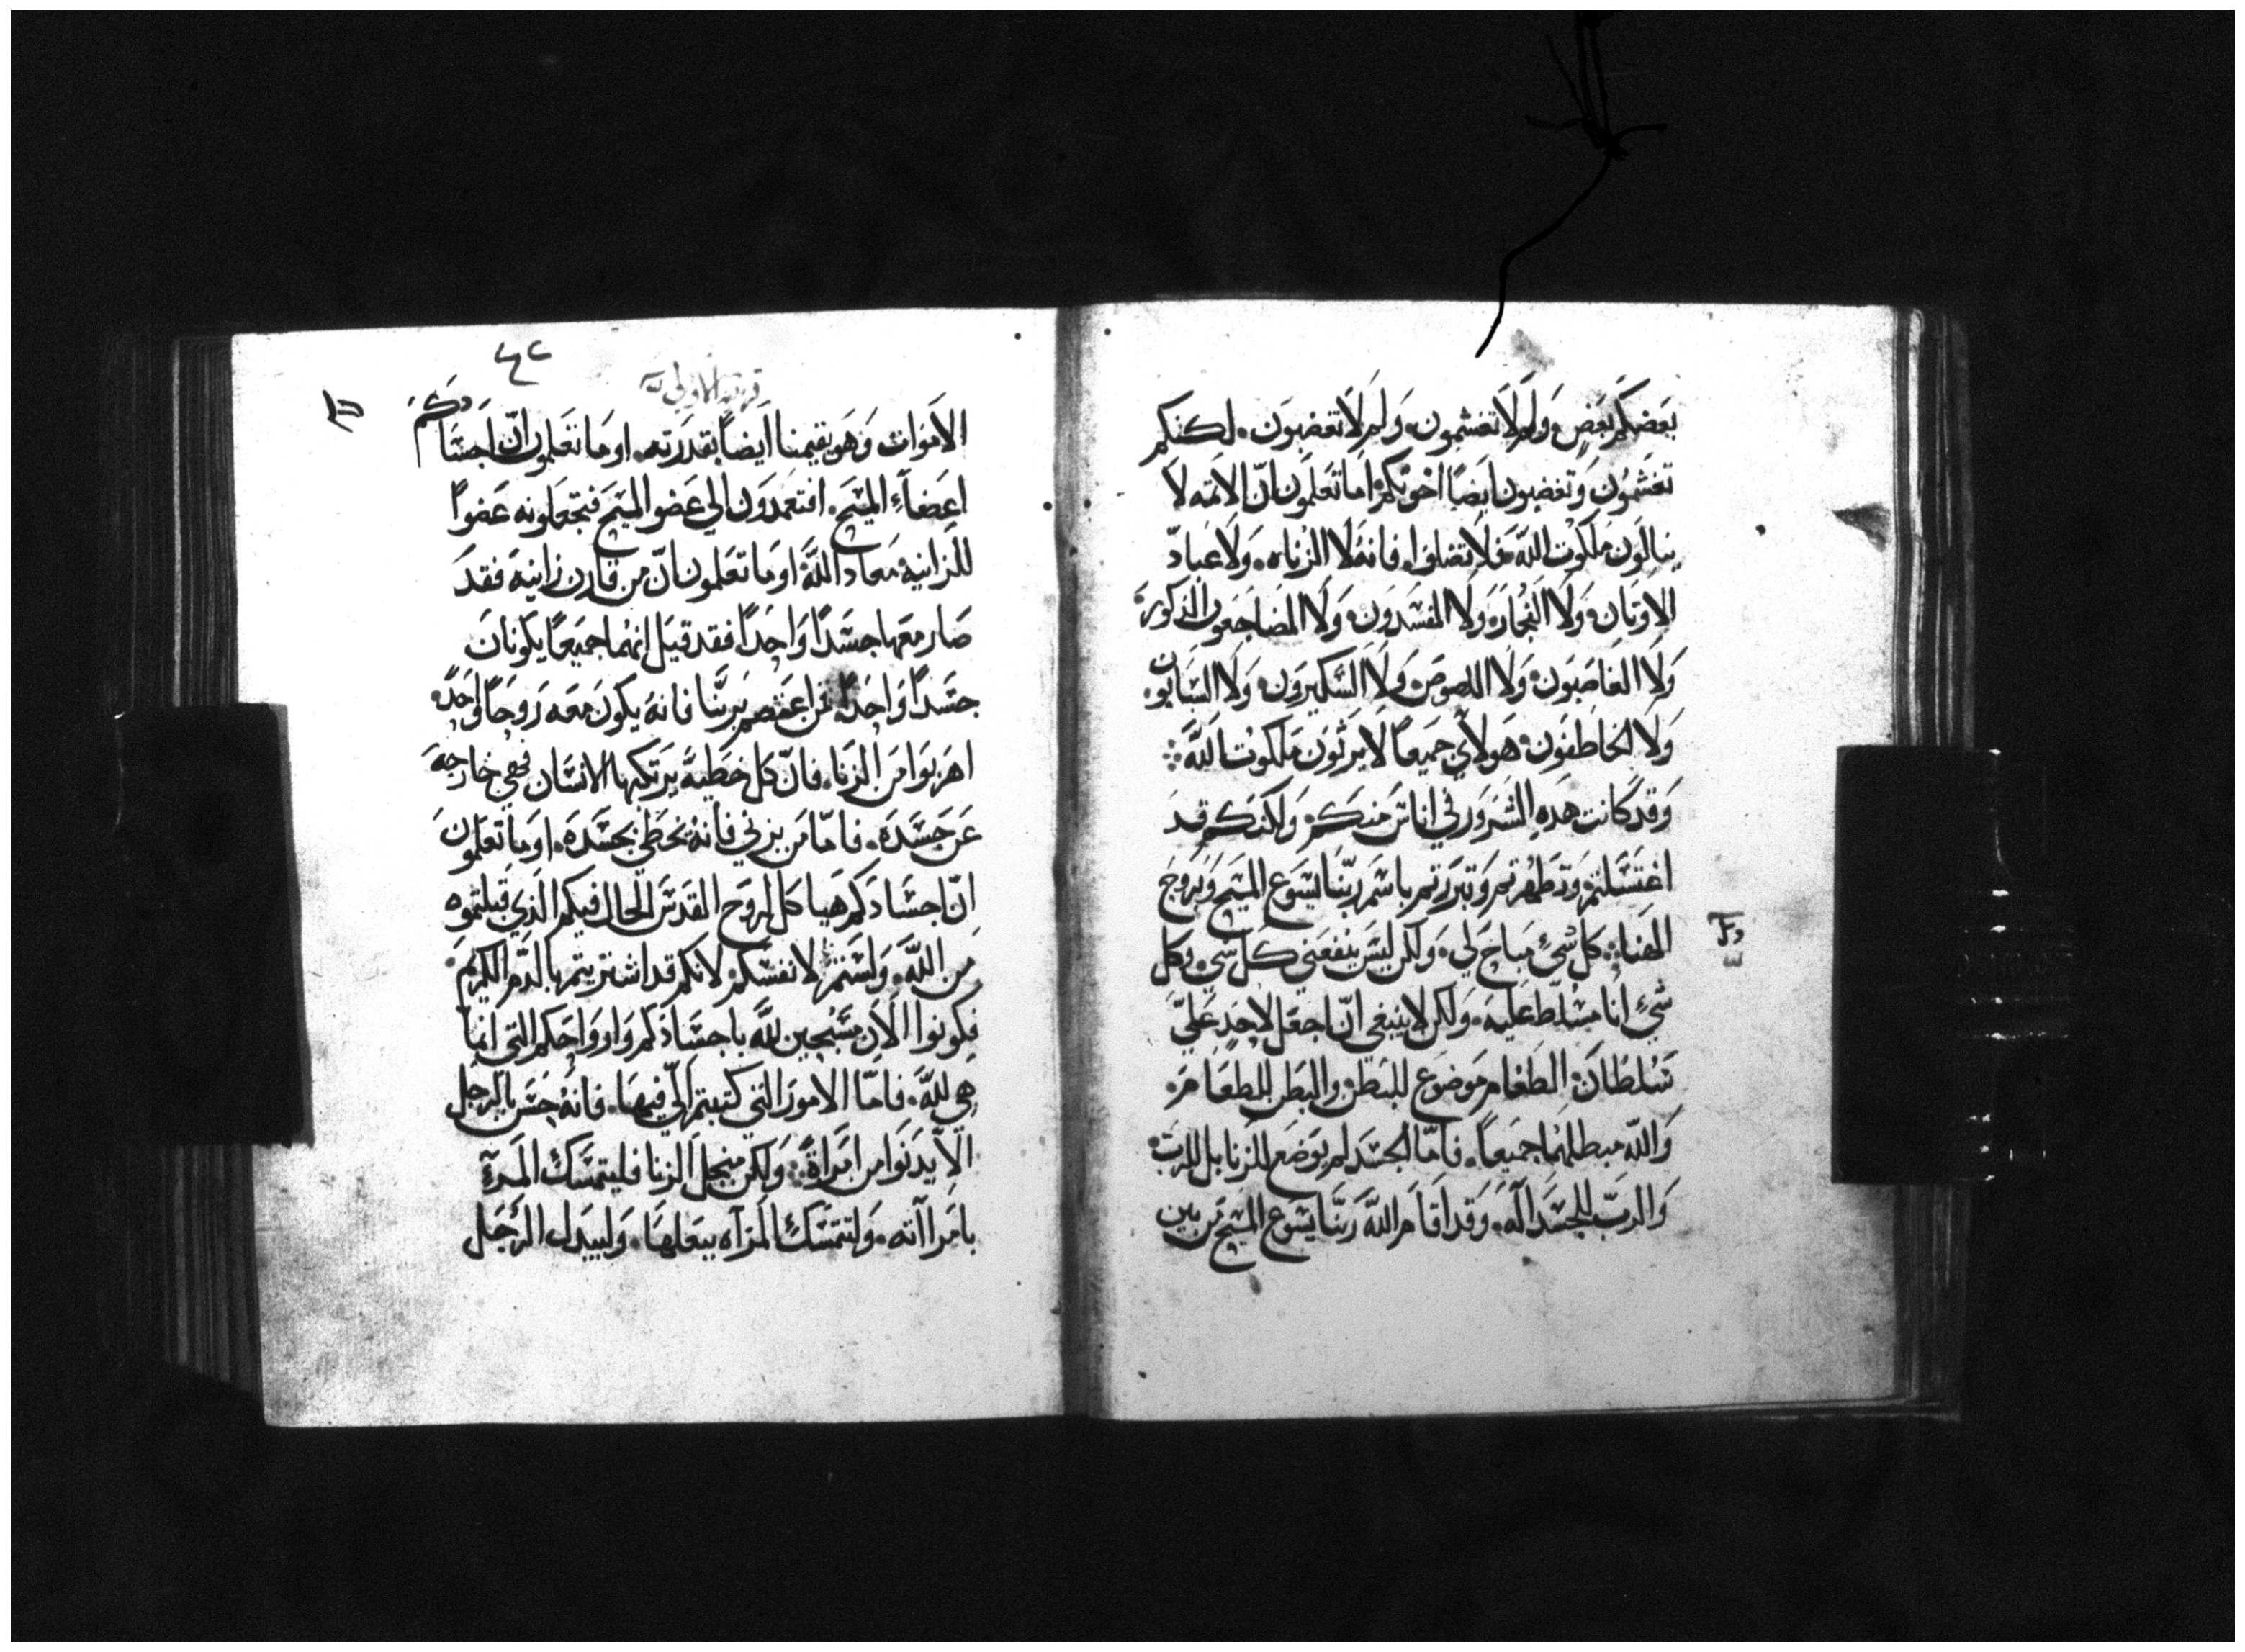 بعضكم بعض ولم لا تغشمون ولم لا تغضبون. لكنكم
تغشمون وتغضبون ايضا اخوتكم اما تعلمون انّ الاثمه لا
ينالون ملكوت اللّه فلا تضلوا. فانه لا الزناه. ولا عبادّ
الاوثان ولا الفجار ولا المفسدون ولا المضاجعون الذكوره
ولا الغاصبون ولا اللصوص ولا السكيرون ولا السبابون.
ولا الخاطفون هولاي جميعاً لا يرثون ملكوت اللّه
وقد كانت هذه الشرور في اناس منكم ولكنكم قد
اغتسلتم وتطهرتم وتبررتم باسم ربّنا يسوع المسيح وبروح
الهنا: كل شيءٍ مباح لي. ولكن ليس ينفعني كل شي وكل
شيءٍ انا مسلط عليه. ولكن لا ينبغي انّ اجعل لاحدٍ عليّ
تسلطان الطعام موضوع للبطن والبطن للطعام.
واللّه مبطلهما جميعاً. فامّا الجسد لم يوضع للزنا بل للرب
والربّ للجسد اله. وقد اقام اللّه ربّنا يسوع المسيح من بين
٤٢
قرنتيه الاولي
الاموات وهو يقيمنا ايضاً بقدرته. اوما تعلمون انّ اجسادكم
اعضاءِ المسيح. افتعمدون الي عضو المسيح فتجعلونه عضواً
للزانيه معاد اللّه اوما تعلمون انّ من قارن زانيه فقد
صار معها جسداً واحداً فقد قيل انهما جميعاً يكونان
جسداً واحداً فمن اعتصم بربّنا فانه يكون معه روحاً واحده
اهربوا من الزنا. فانّ كل خطيه يرتكبها الانسان فهي خارجه
عن جسده. فامّا من يزني فانه يخطي بجسده. اوما تعلمون
انّ اجسادكم هياكل لروح القدس الحال فيكم الذي قبلتموه
من اللّه. ولستم لانفسكم لانكم قد اشتريتم بالدّم الكريم
فكونوا الان مسبحين للّه باجسادكم وارواحكم التي انما
هي للّه. فامّا الامور التي كتبتم اليّ فيها. فانه حسن بالرجل
الا يدنوا من امراةٍ: ولكن منجل الزنا فليتمسك المرءٓ
بامرااته. ولتتمسك المرآه ببعلها. وليبدل الرجل